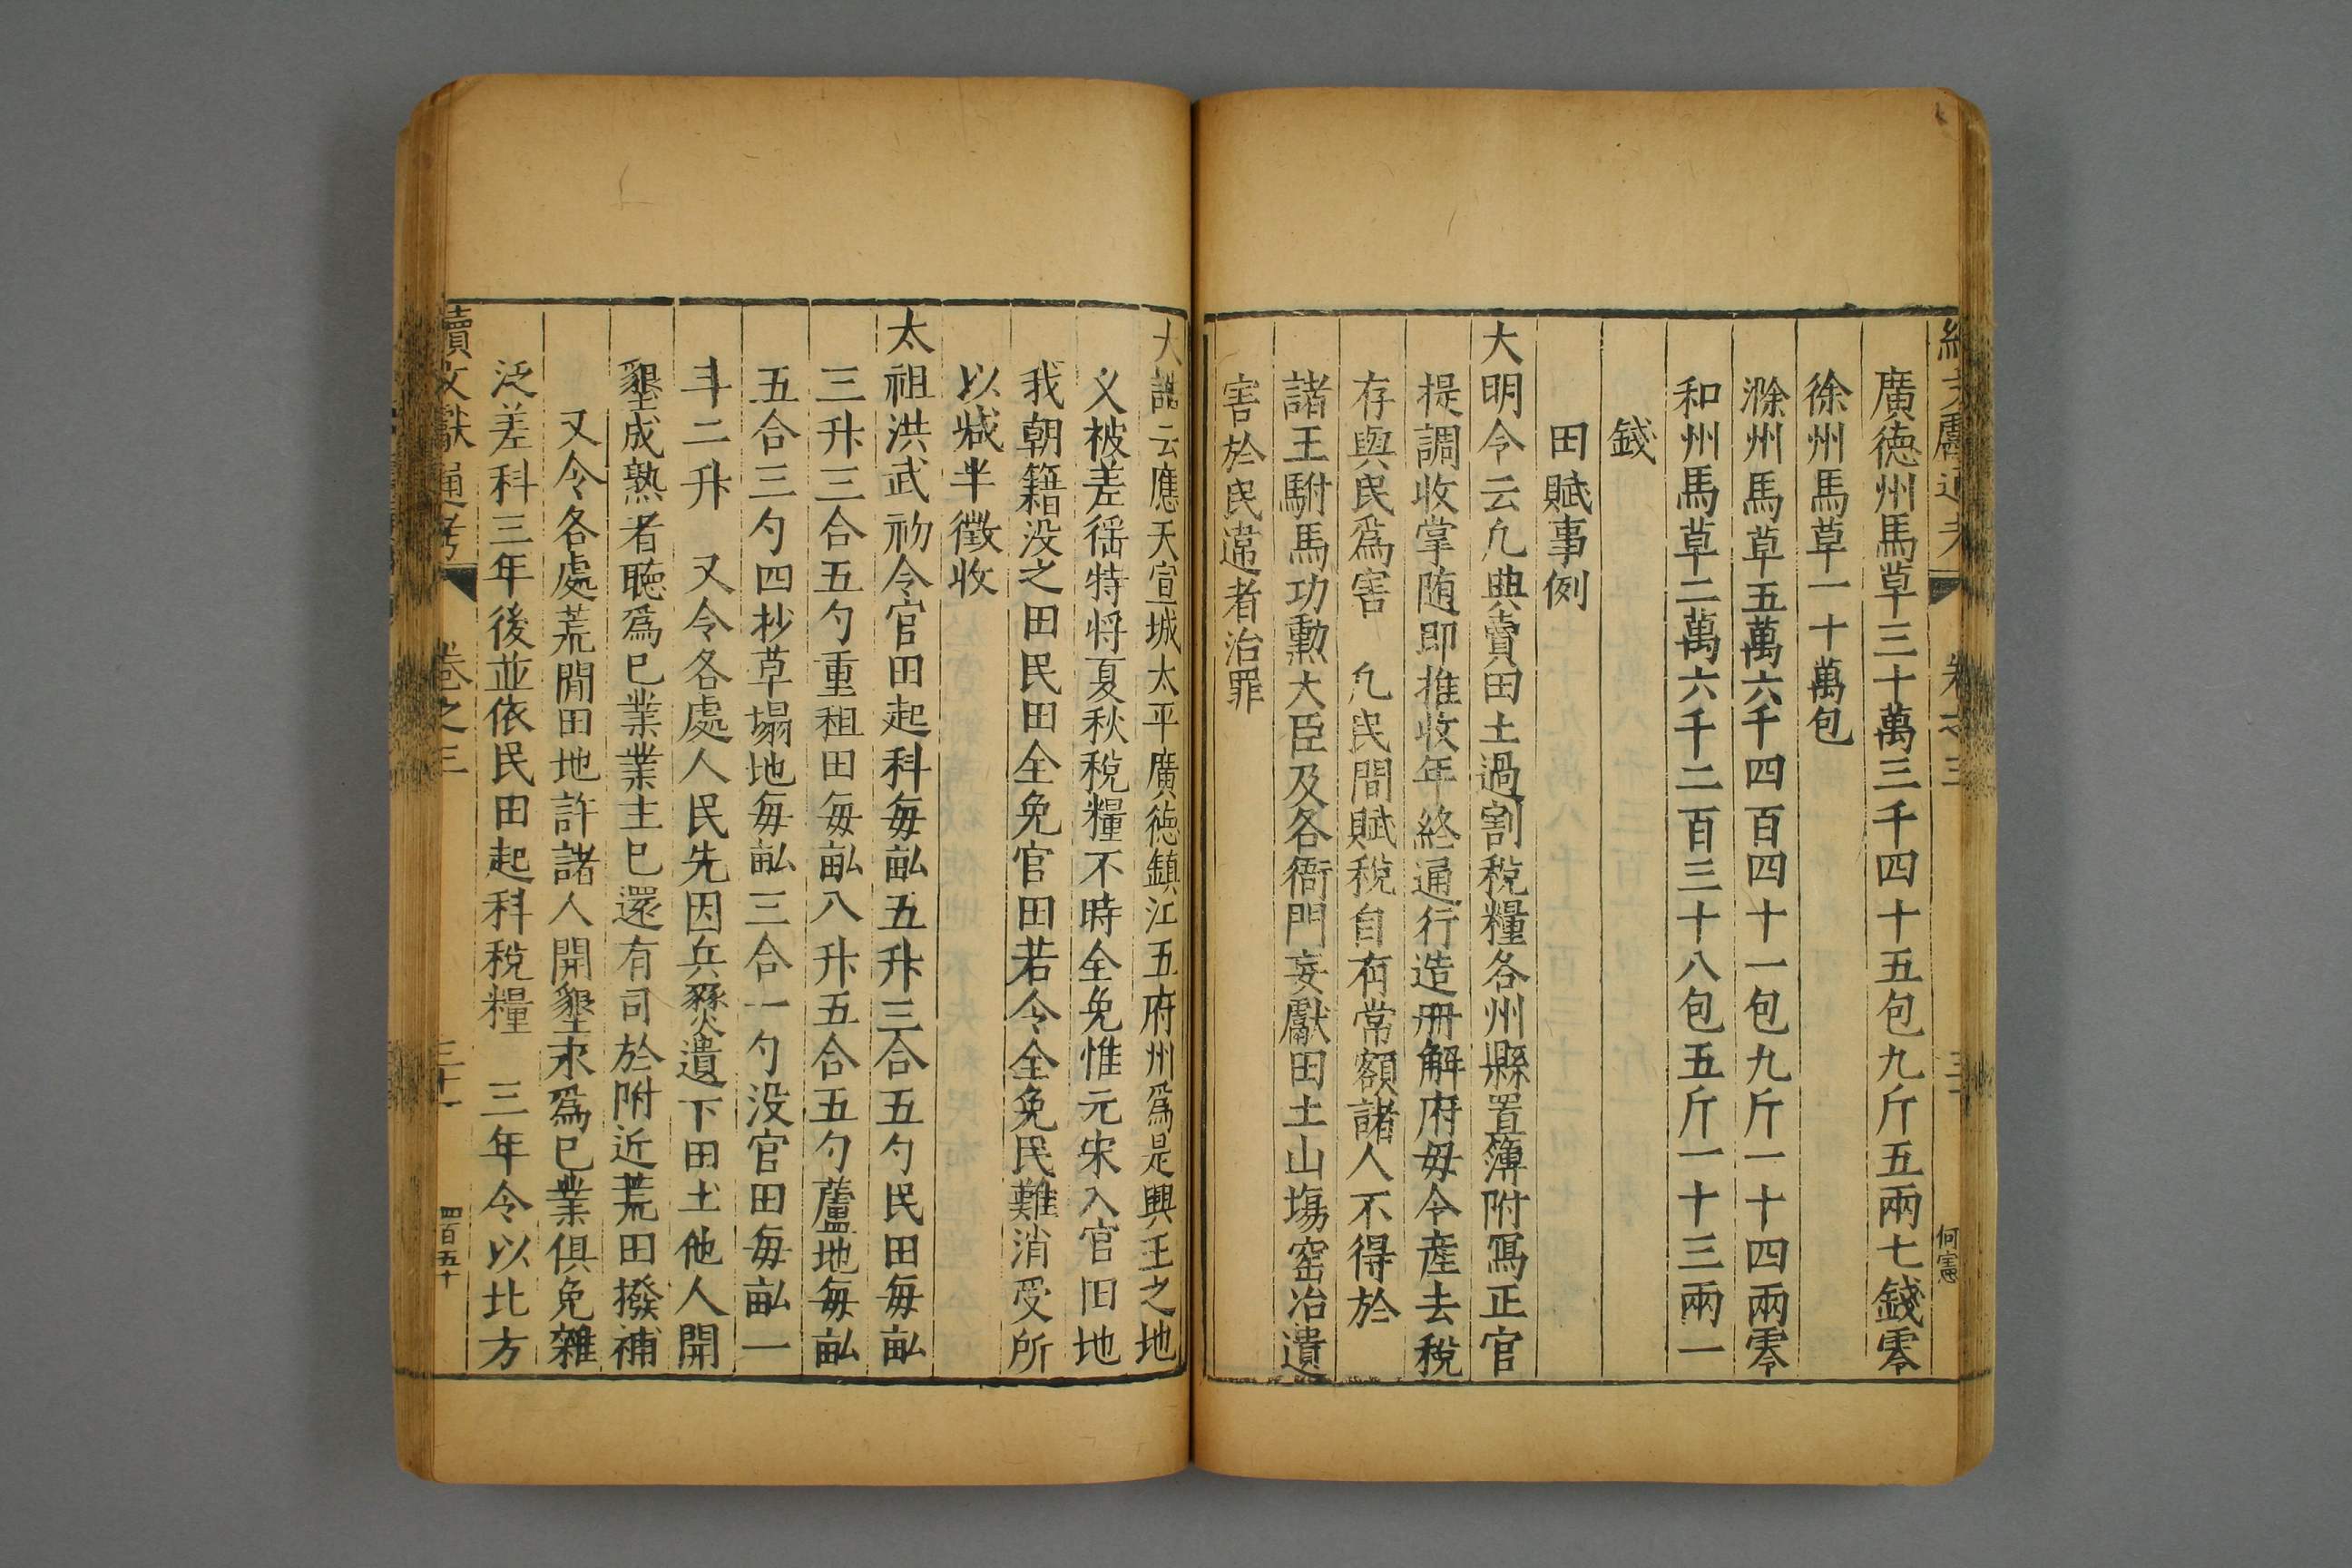 續文獻通考 卷之三 三十 何憲
廣徳州馬草三十萬三千四十五包九斤五兩七錢零
徐州馬草一十萬包
滁州馬草五萬六千四百四十一包九斤一十四兩零
和州馬草二萬六千二百三十八包五斤一十三兩一
錢
田賦事例
大明令云凢典賣田土過割稅糧各州縣置簿附寫正官
提調收掌随即推收年終通行造册解府毋令産去稅
存與民爲害 凢民間賦稅自有常額諸人不得於
諸王駙馬功勳大臣及各衙門妄獻田土山塲窑冶遺
害於民違者治罪
大誥云應天宣城太平廣徳鎮江五府州爲是興王之地
义被差徭特将夏秋稅糧不時全免惟元宋入官旧地
我朝籍没之田民田全免官田若令全免民難消受所
以减半徵收
太祖洪武初令官田起科每畝五升三合五勺民田每畝
三升三合五勺重租田每畝八升五合五勺蘆地每畝
五合三勺四抄草塲地每畝三合一勺没官田每畝一
斗二升 又令各處人民先因兵燹遺下田土他人開
墾成熟者聽爲己業業主已還有司於附近荒田撥補
又令各處荒閒田地許諸人開墾永爲己業俱免雜
泛差科三年後並依民田起科稅糧 三年令以北方
續文獻通考 卷之三 三十一 四百五十